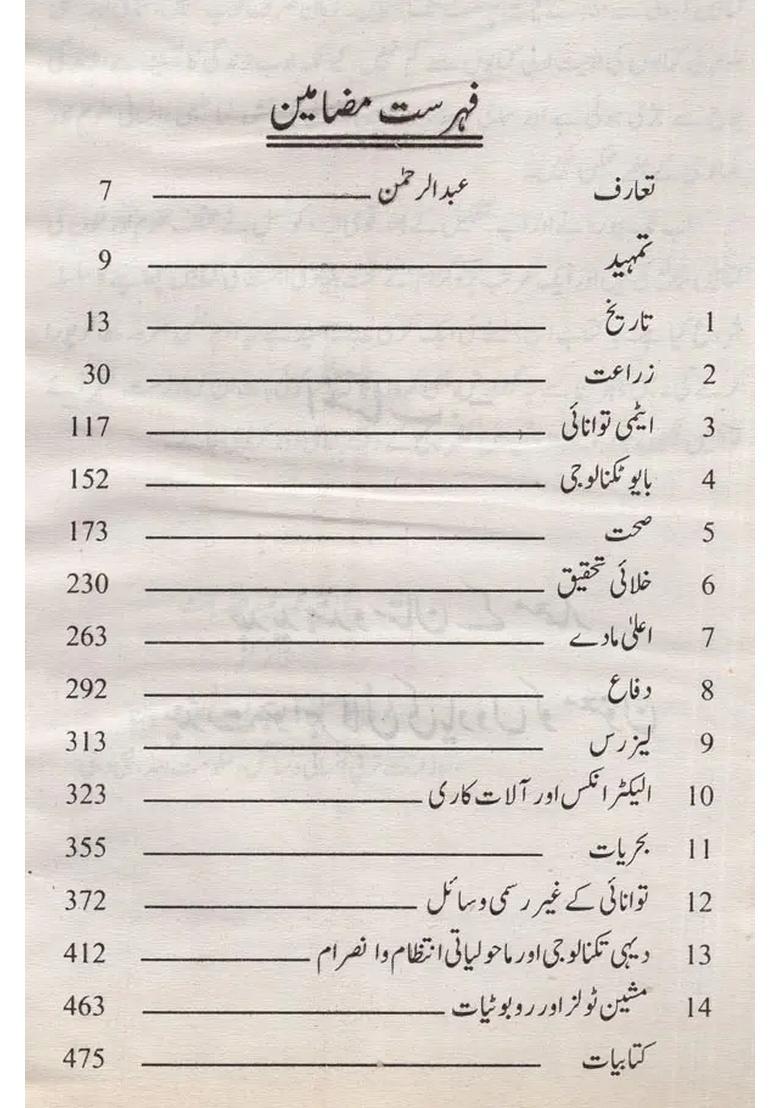 فہرست مضامین
تعارف عبدالرحمٰن 7
تمہید 9
1 تاریخ 13
2 زراعت 30
3 ایٹمی توانائی 117
4 بایو ٹکنالوجی 152
5 صحت 173
6 خلائی تحقیق 230
7 اعلیٰ مادے 263
8 دفاع 292
9 لیزرس 313
10 الیکٹرانکس اور آلات کاری 323
11 بحریات 355
12 توانائی کے غیر رسمی وسائل 372
13 دیہی تکنالوجی اور ماحولیاتی انتظام وانصرام 412
14 مشین ٹولز اور روبوٹیات 463
کتابیات 475